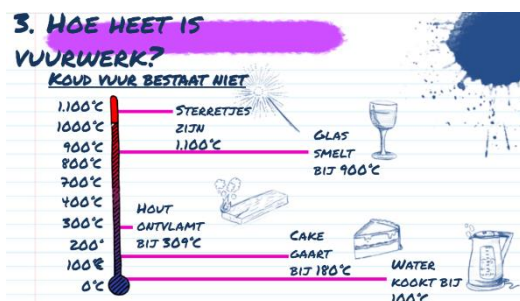 3. HOE HEET IS
VUURWERK?
KOUD VUUR BESTAAT NIET
1.100°C
1000°C
900°C
800°C
700°C
400°C
300°C
200°
100°C
0°C
STERRETJES
ZIJN
1.100°C
GLAS
SMELT
BIJ 900°C
HOUT
ONTVLAMT
BIJ 309°C
CAKE
GAART
BIJ 180°C
WATER
KOOKT BIJ
100°C